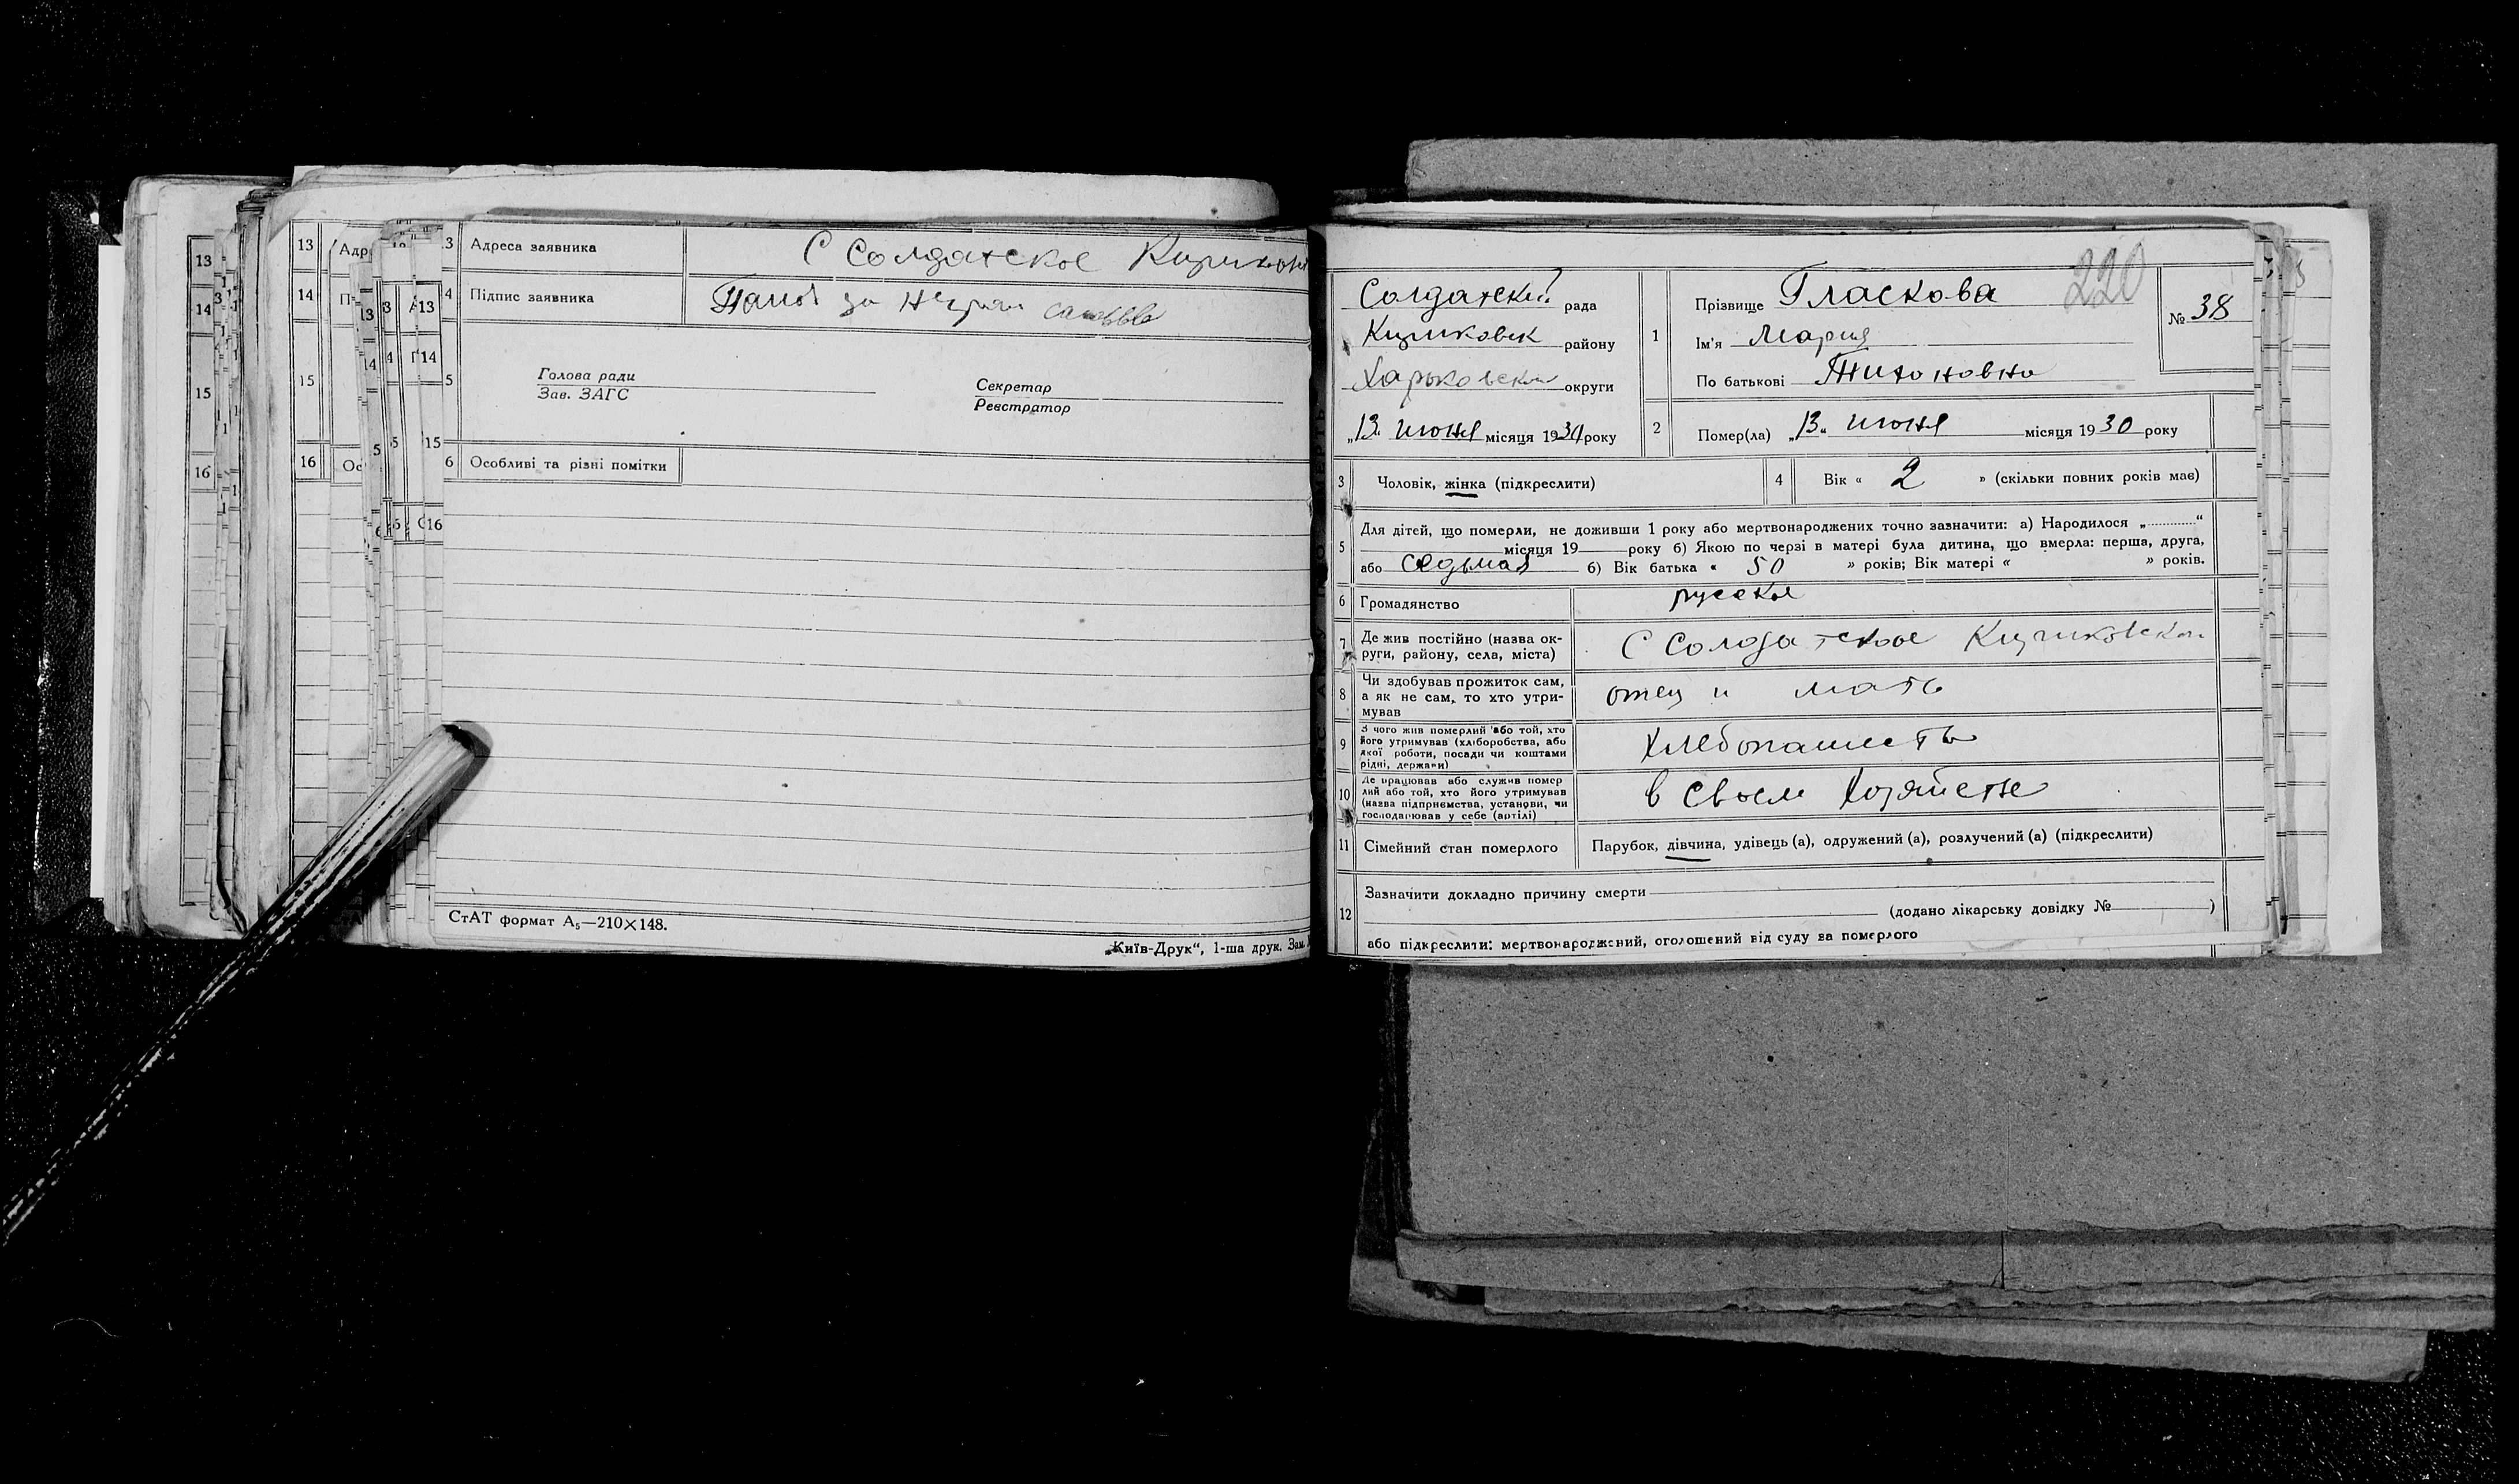 13 Адреса заявника С Солдатское
14 Підпис заявника за
15 Голова ради
Зав. ЗАГС
Секретар
Реєстратор
16 Особливі та різні помітки
СтАТ формат А₅—210×148.
„Київ-Друк“, 1-ша друк. Зам.
220
Солдатский рада
району
Харьковской округи
„13“ июня місяця 1930 року
1 Прізвище Гласкова
Ім'я Мария
По батькові Тихоновна
№ 38
2 Помер(ла) „13“ июня місяця 1930 року
3 Чоловік, жінка (підкреслити)
4 Вік « 2 » (скільки повних років має)
5 Для дітей, що померли, не доживши 1 року або мертвонароджених точно зазначити: а) Народилося „ “
місяця 19 року б) Якою по черзі в матері була дитина, що вмерла: перша, друга,
або седьмая б) Вік батька « 50 » років; Вік матері « » років.
6 Громадянство русское
7 Де жив постійно (назва ок-
руги, району, села, міста) С Солдатское
8 Чи здобував прожиток сам,
а як не сам, то хто утри-
мував отец и мать
9 З чого жив померлий або той, хто
його утримував (хліборобства, або
якої роботи, посади чи коштами
рідні, держави) хлебопашеств
10 Де працював або служив помер
лий або той, хто його утримував
(назва підприємства, установи, чи
господарював у себе (артілі) в своем хозяйстве
11 Сімейний стан померлого Парубок, дівчина, удівець (а), одружений (а), розлучений (а) (підкреслити)
12 Зазначити докладно причину смерти
(додано лікарську довідку № )
або підкреслити: мертвонароджений, оголошений від суду за померлого